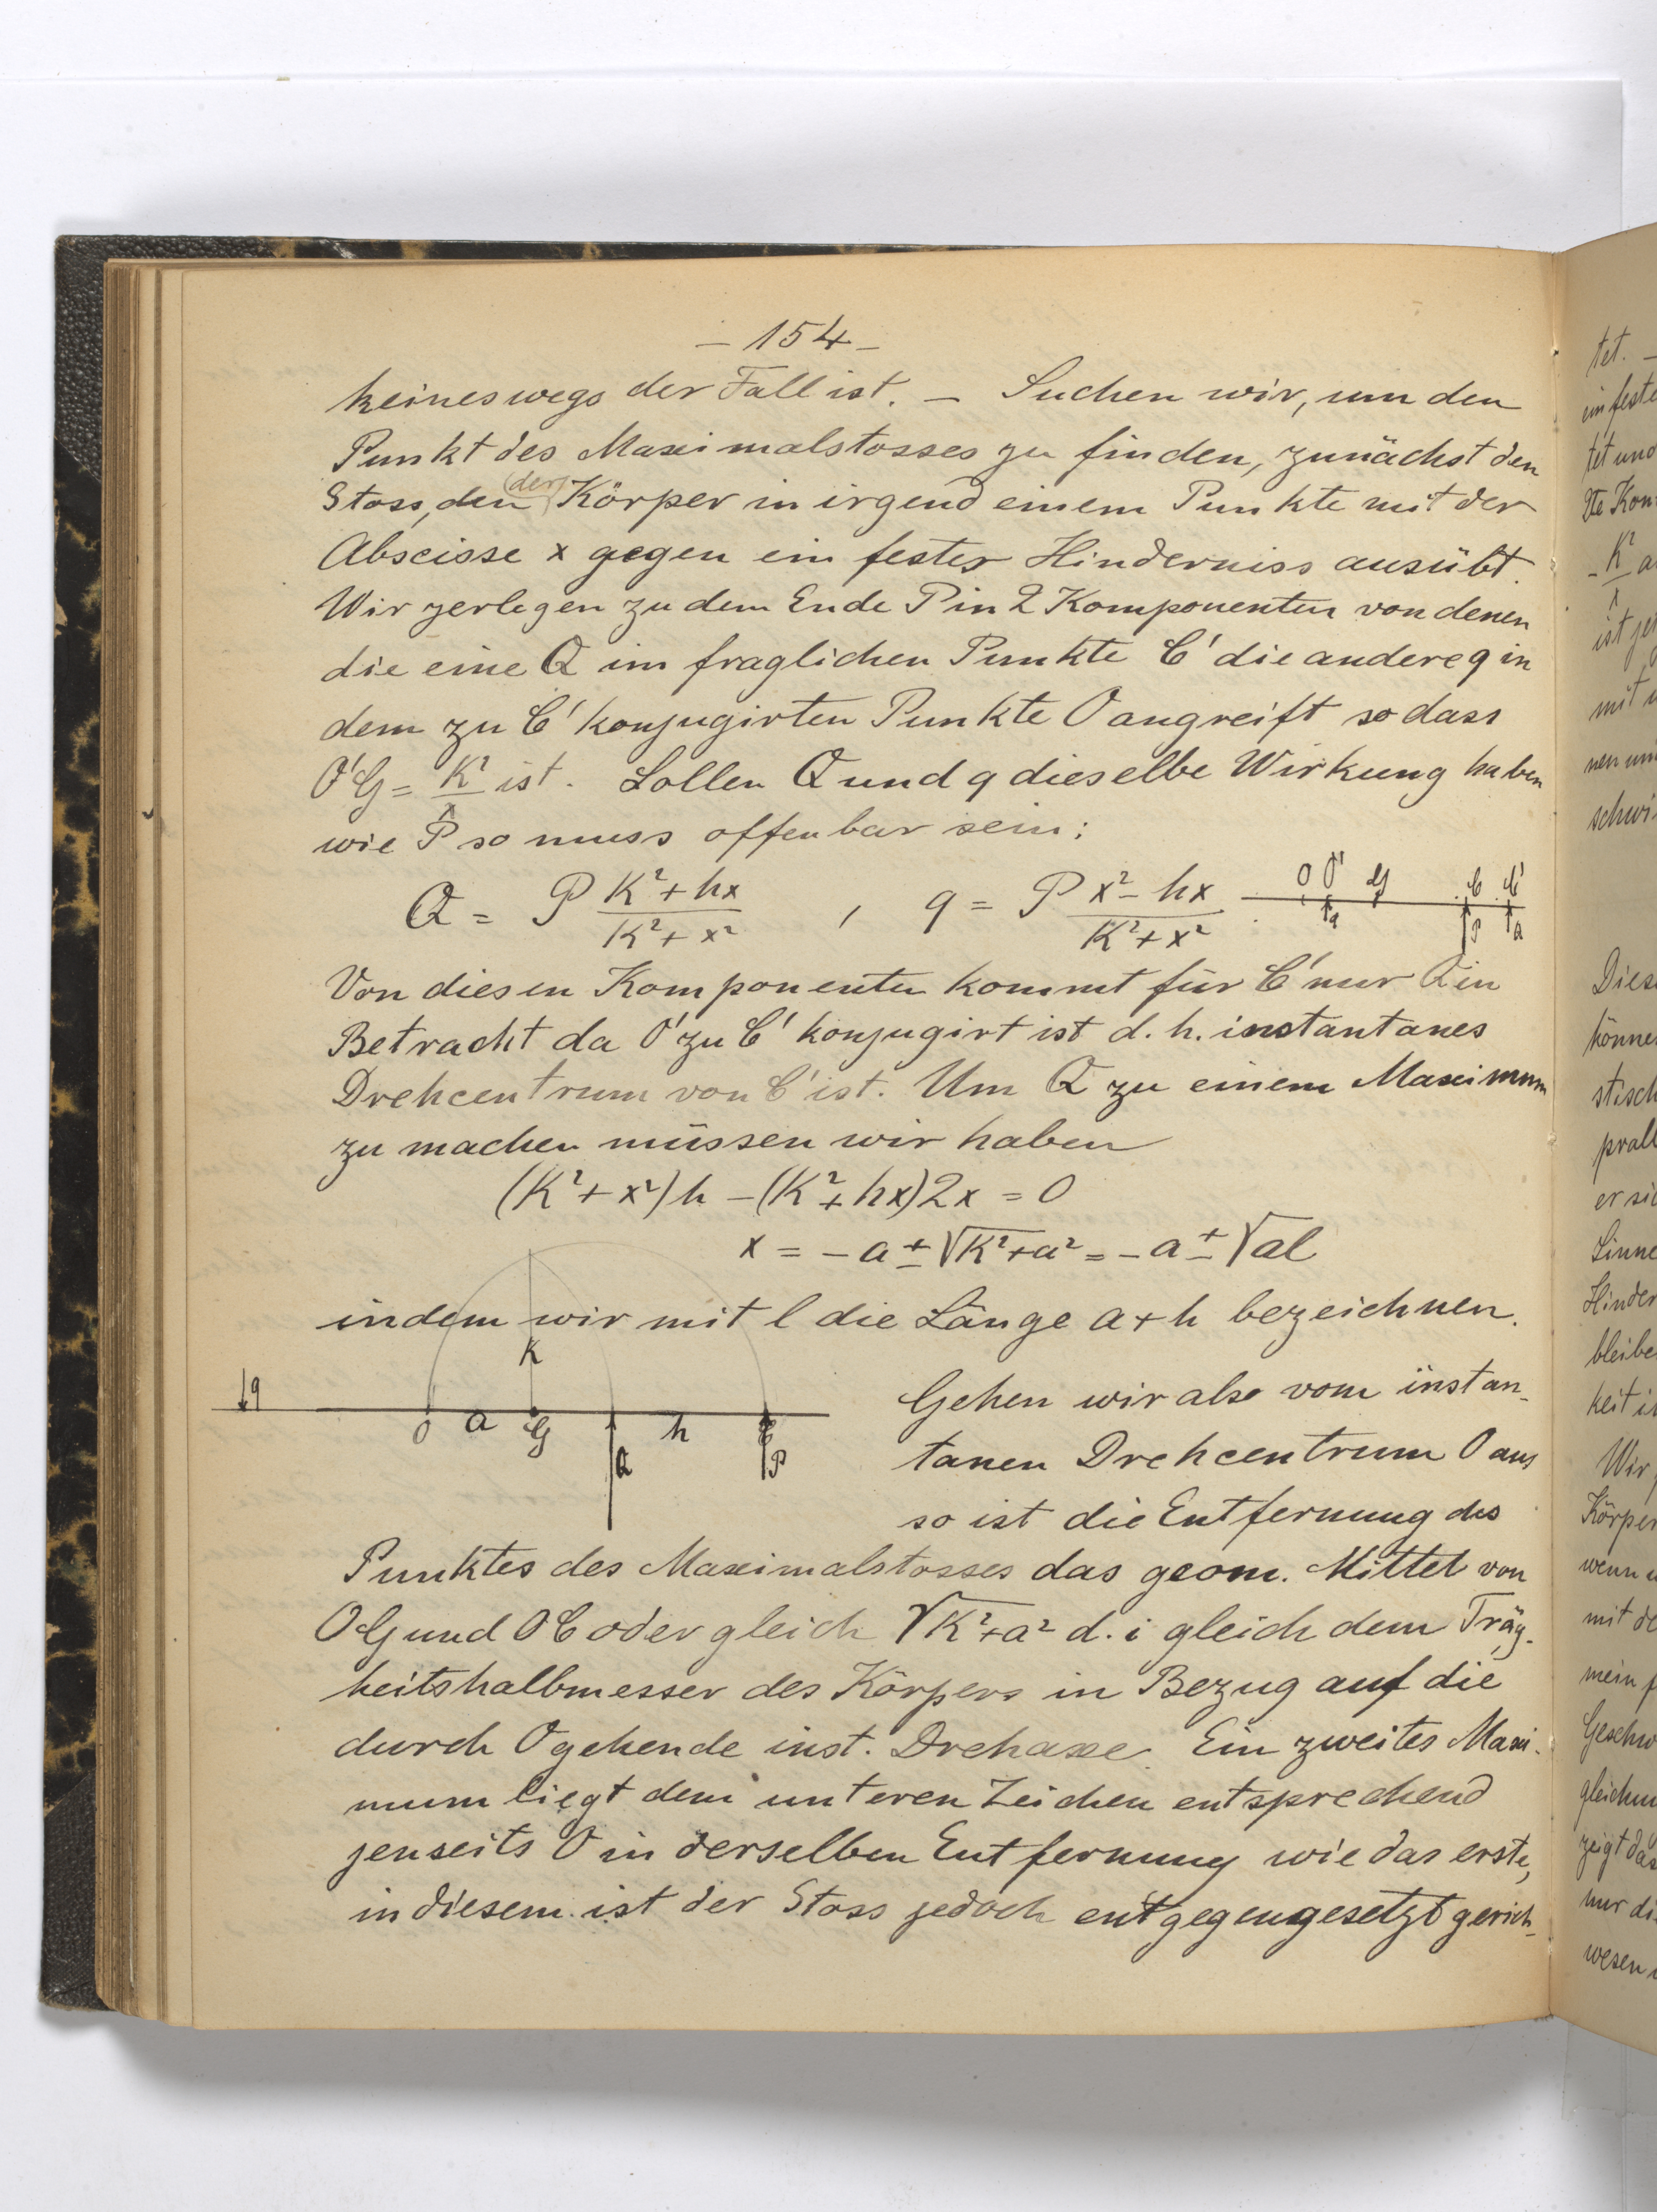 – 154 –
keineswegs der Fall ist. – Suchen wir, um den
Punkt des Maximalstosses zu finden, zunächst den
Stoss, den (der) Körper in irgend einem Punkte mit der
Abscisse x gegen ein festes Hinderniss ausübt.
Wir zerlegen zu dem Ende P in 2 Komponenten von denen
die eine Q im fraglichen Punkte C' die andere q in
dem zu C' konjugirten Punkte O angreift so dass
O'G = K²/x ist. Sollen Q und q dieselbe Wirkung haben
wie P so muss offenbar sein:
Q = P (K² + hx)/(K² + x²) , q = P (x² – hx)/(K² + x²)
O O' G C C'
q P Q
Von diesen Komponenten kommt für C' nur Q in
Betracht da O' zu C' konjugirt ist d. h. instantanes
Drehcentrum von C' ist. Um Q zu einem Maximum
zu machen müssen wir haben
(K² + x²) h – (K² + hx) 2x = 0
x = – a ± √K² + a² = – a ± √al
indem wir mit l die Länge a + h bezeichnen.
K
q
O a G h C
Q P
Gehen wir also vom instan-
tanen Drehcentrum O aus
so ist die Entfernung des
Punktes des Maximalstosses das geom. Mittel von
OG und OC oder gleich √K² + a² d. i gleich dem Träg-
heitshalbmesser des Körpers in Bezug auf die
durch O gehende inst. Drehaxe. Ein zweites Maxi-
mum liegt dem unteren Zeichen entsprechend
jenseits O in derselben Entfernung wie das erste,
in diesem ist der Stoss jedoch entgegengesetzt gerich-
tet. –
ein feste
tet und
2te Kom
– K² a
x
ist je
mit
nen um
schwi
Diese
könne
stisch
prall
er sic
Sinne
Hinder
bleibe
keit i
Wir
Körper
wenn
mit de
mein
Geschw
gleichm
zeigt das
nur di
wesen